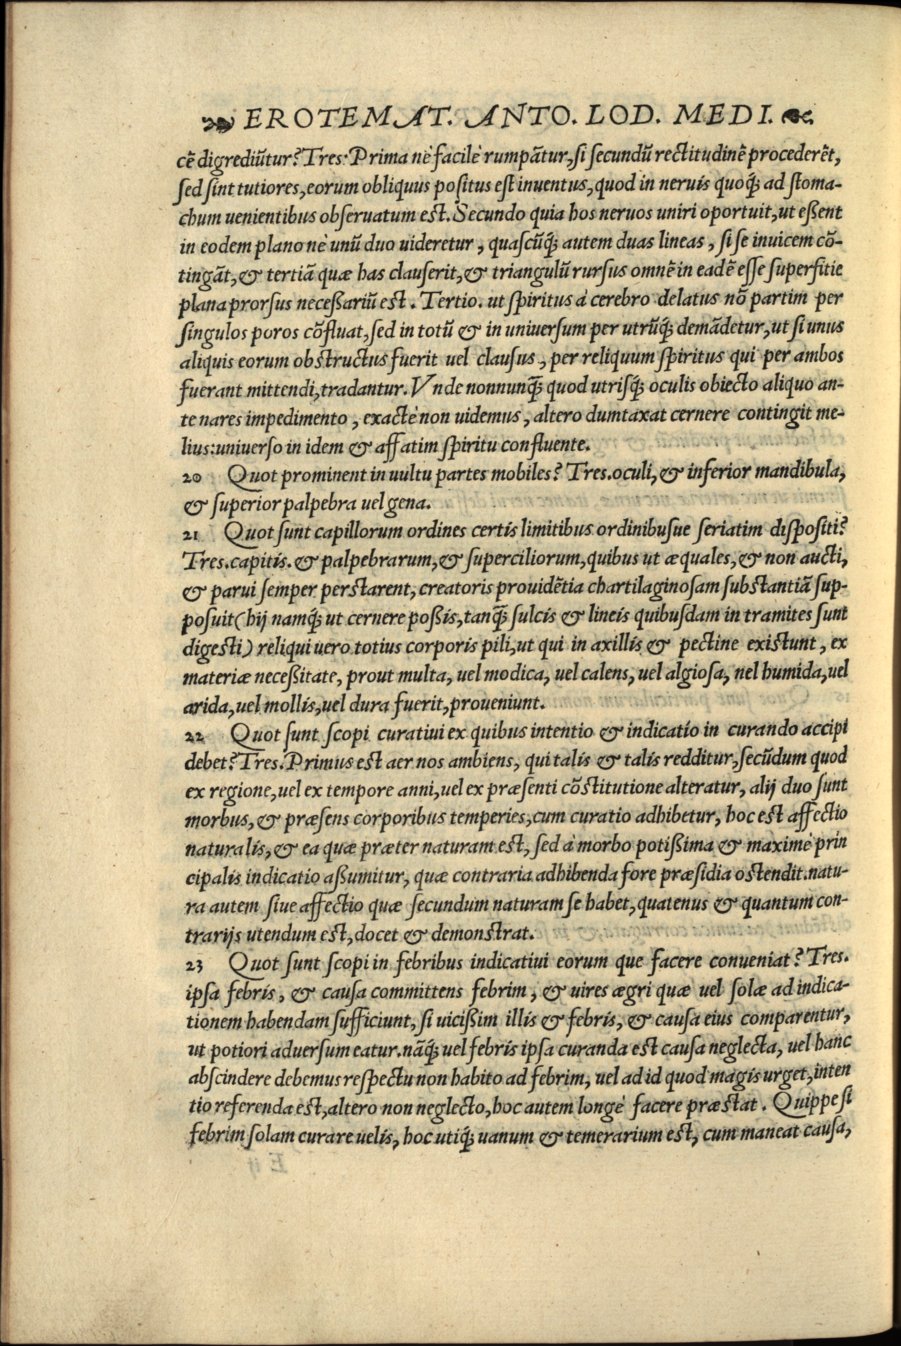 EROTEMAT. ANTO. LOD. MEDI.
cẽ digrediũtur? Tres: Prima nè facilè rumpãtur, si secundũ rectitudinẽ procederẽt,
sed sint tutiores, eorum obliquus positus est inuentus, quod in neruis quoq́; ad stoma-
chum uenientibus obseruatum est. Secundo quia hos neruos uniri oportuit, ut eßent
in eodem plano nè unũ duo uideretur, quascũq́; autem duas lineas, si se inuicem cõ-
tingãt, & tertiã quæ has clauserit, & triangulũ rursus omnẽ in eadẽ esse superfitie
plana prorsus neceßariũ est. Tertio. ut spiritus à cerebro delatus nõ partim per
singulos poros cõfluat, sed in totũ & in uniuersum per utrũq́; demãdetur, ut si unus
aliquis eorum obstructus fuerit uel clausus, per reliquum spiritus qui per ambos
fuerant mittendi, tradantur. Vnde nonnunq̃; quod utrisq́; oculis obiecto aliquo an-
te nares impedimento, exactè non uidemus, altero dumtaxat cernere contingit me-
lius: uniuerso in idem & affatim spiritu confluente.
20 Quot prominent in uultu partes mobiles? Tres. oculi, & inferior mandibula,
& superior palpebra uel gena.
21 Quot sunt capillorum ordines certis limitibus ordinibusue seriatim dispositi?
Tres. capitis. & palpebrarum, & superciliorum, quibus ut æquales, & non aucti,
& parui semper perstarent, creatoris prouidẽtia chartilaginosam substantiã sup-
posuit (hij namq́; ut cernere poßis, tanq̃; sulcis & lineis quibusdam in tramites sunt
digesti) reliqui uero totius corporis pili, ut qui in axillis & pectine existunt, ex
materiæ neceßitate, prout multa, uel modica, uel calens, uel algiosa, nel humida, uel
arida, uel mollis, uel dura fuerit, proueniunt.
22 Quot sunt scopi curatiui ex quibus intentio & indicatio in curando accipi
debet? Tres. Primus est aer nos ambiens, qui talis & talis redditur, secũdum quod
ex regione, uel ex tempore anni, uel ex præsenti cõstitutione alteratur, alij duo sunt
morbus, & præsens corporibus temperies, cum curatio adhibetur, hoc est affectio
naturalis, & ea quæ præter naturam est, sed à morbo potißima & maximè prin
cipalis indicatio aßumitur, quæ contraria adhibenda fore præsidia ostendit. natu-
ra autem siue affectio quæ secundum naturam se habet, quatenus & quantum con-
trarijs utendum est, docet & demonstrat.
23 Quot sunt scopi in febribus indicatiui eorum que facere conueniat? Tres.
ipsa febris, & causa committens febrim, & uires ægri quæ uel solæ ad indica-
tionem habendam sufficiunt, si uicißim illis & febris, & causa eius comparentur,
ut potiori aduersum eatur. nãq́; uel febris ipsa curanda est causa neglecta, uel hanc
abscindere debemus respectu non habito ad febrim, uel ad id quod magis urget, inten
tio referenda est, altero non neglecto, hoc autem longè facere præstat. Quippe si
febrim solam curare uelis, hoc utiq́; uanum & temerarium est, cum maneat causa,